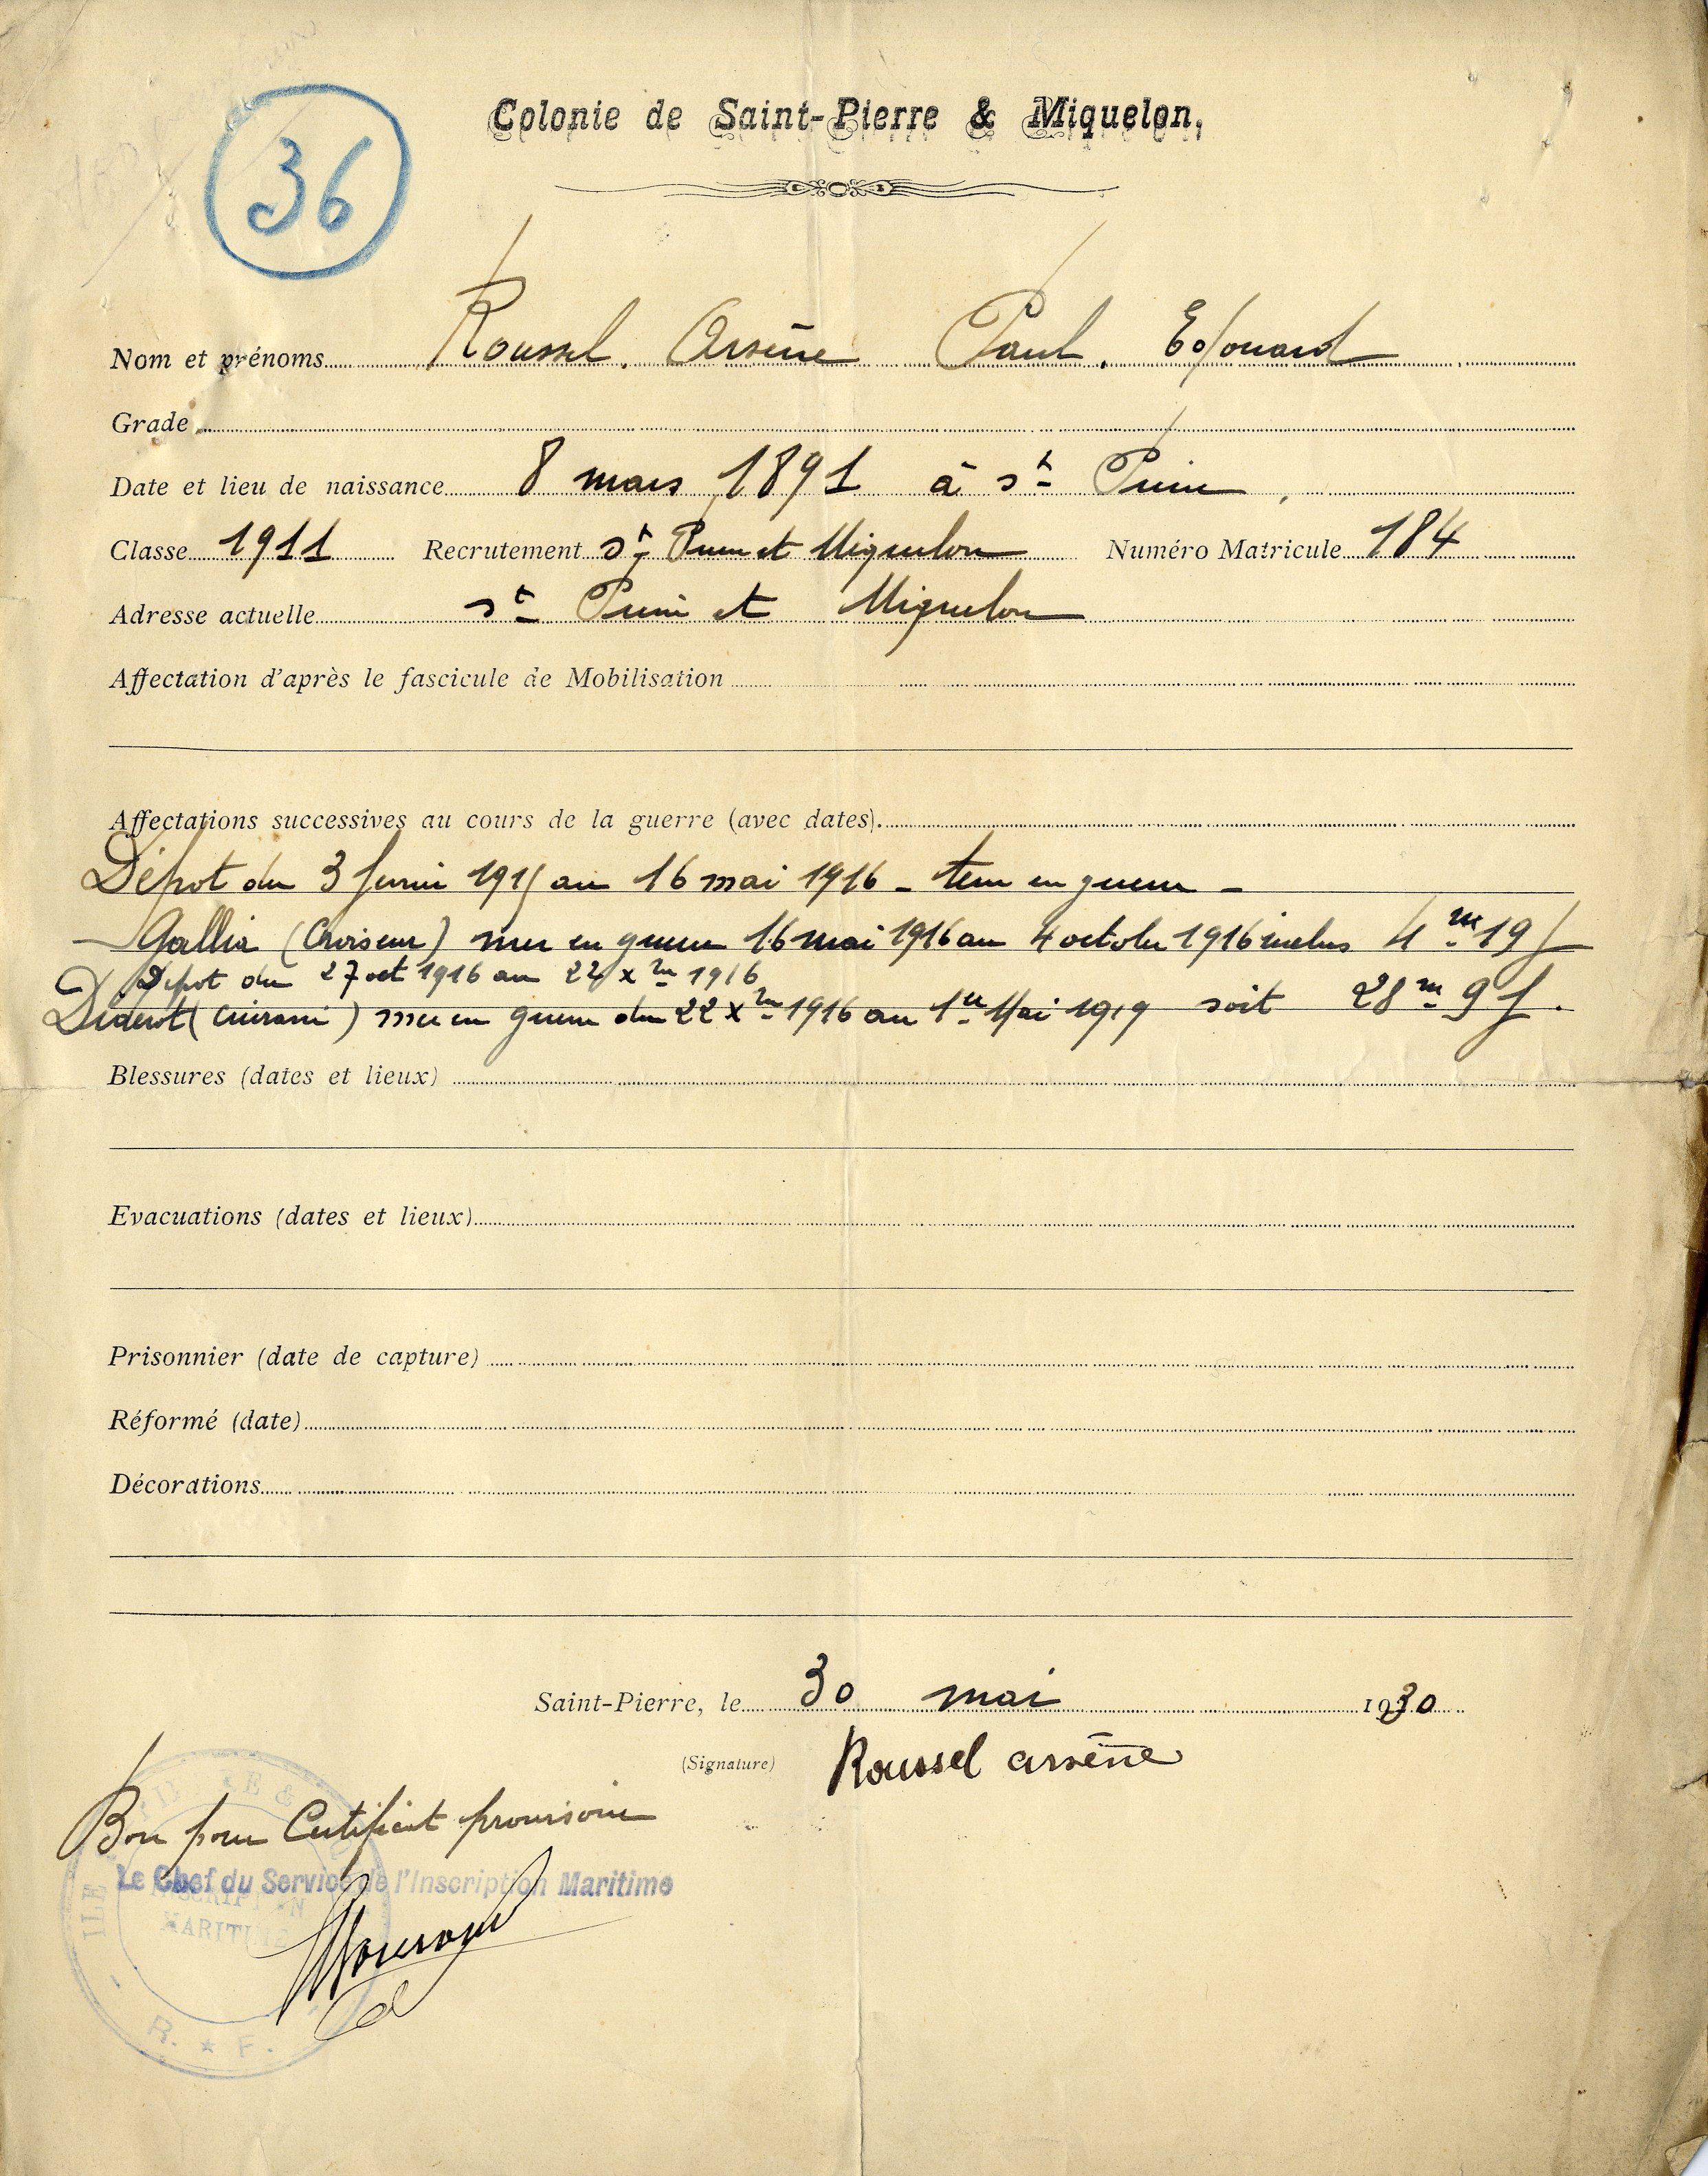 36
Colonie de Saint-Pierre & Miquelon,
Nom et prénoms Roussel. Arsène Paul. Edouard
Grade
Date et lieu de naissance 8 mars 1891 à St Pierre
Classe 1911 Recrutement St Pierre et Miquelon Numéro Matricule 184
Adresse actuelle St Pierre et Miquelon
Affectation d'après le fascicule de Mobilisation
Affectations successives au cours de la guerre (avec dates).
Dépot du 3 fevrier 1915 au 16 mai 1916 - terre en guerre -
Gallia (Croiseur) mer en guerre 16 mai 1916 au 4 octobre 1916 inclus 4 m 19 j
Dépot du 27 oct 1916 au 22 Xbre 1916
Diderot (Cuirassé) mer en guerre du 22 Xbre 1916 au 1er Mai 1919 soit 28 m 9 j.
Blessures (dates et lieux)
Evacuations (dates et lieux)
Prisonnier (date de capture)
Réformé (date)
Décorations
Saint-Pierre, le 30 mai 1930
(Signature) Roussel arsène
Bon pour Certificat provisoire
Le Chef du Service de l'Inscription Maritime
INSCRIPTION
MARITIME
R. F.